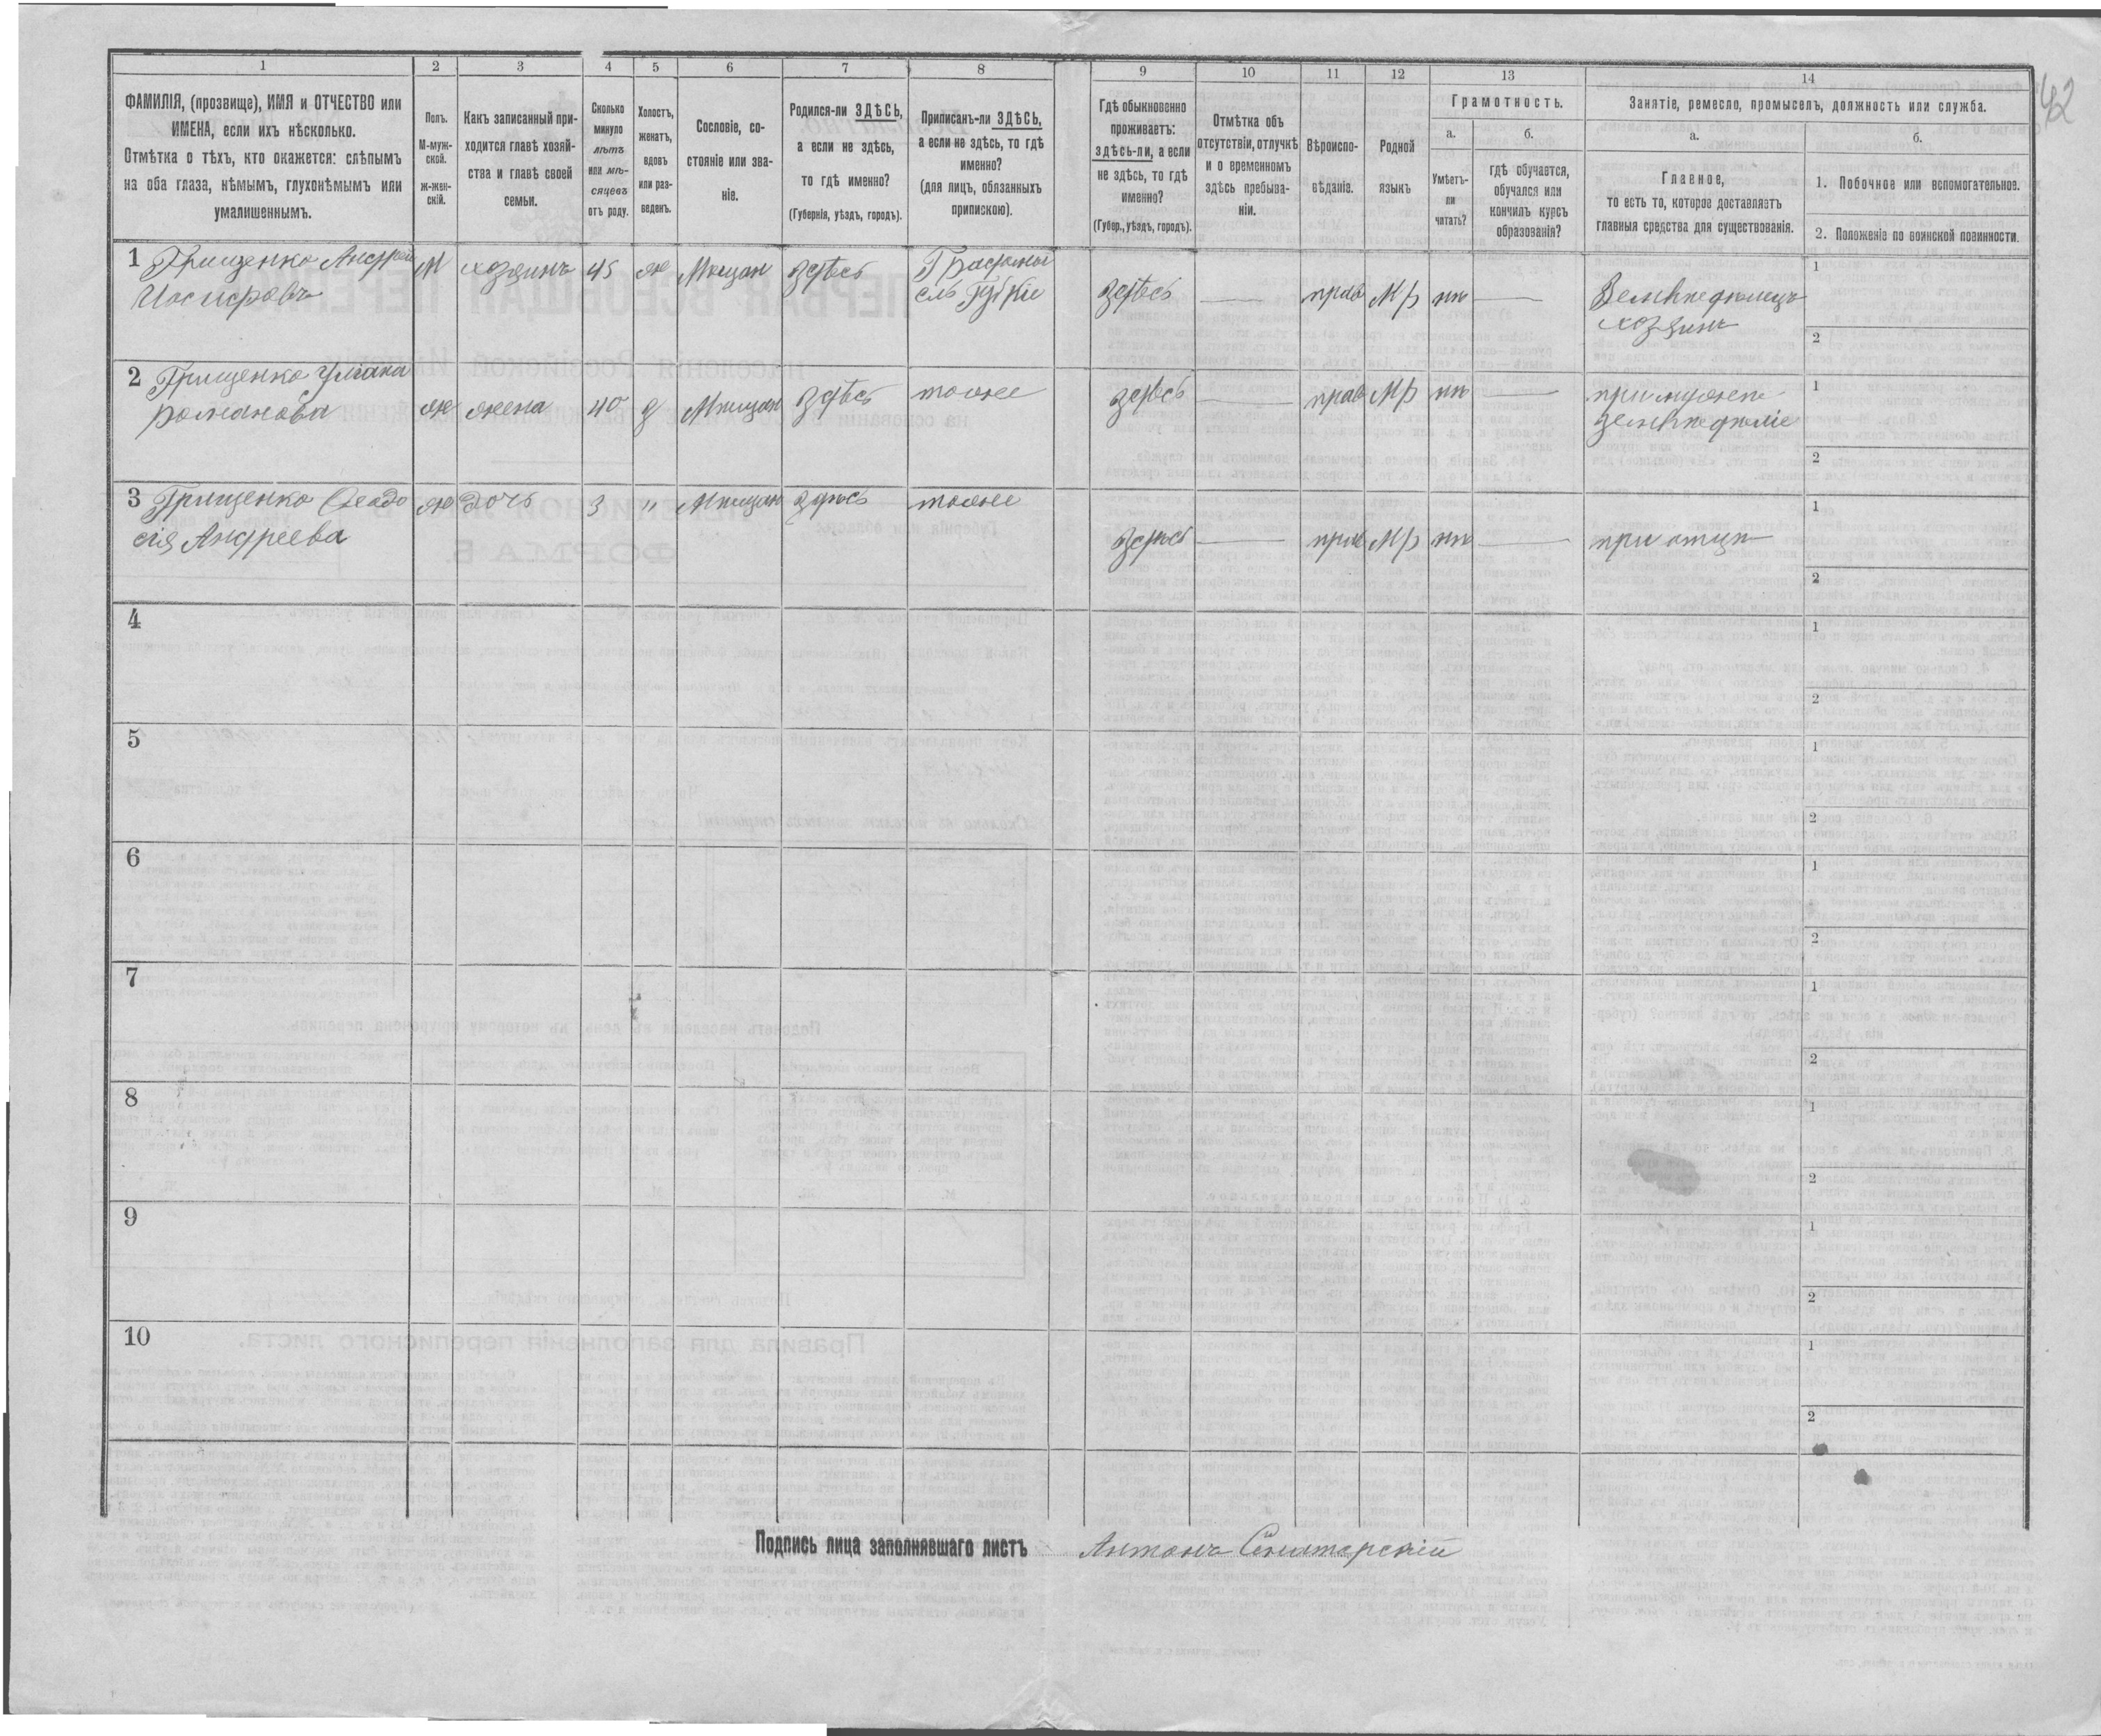 42
1 2 3 4 5 6 7 8 9 10 11 12 13 14
ФАМИЛІЯ, (прозвище), ИМЯ и ОТЧЕСТВО или
ИМЕНА, если ихъ нѣсколько.
Отмѣтка о тѣхъ, кто окажется: слѣпымъ
на оба глаза, нѣмымъ, глухонѣмымъ или
умалишеннымъ.
Полъ.
М-муж-
ской.
ж-жен-
скій.
Какъ записанный при-
ходится главѣ хозяй-
ства и главѣ своей
семьи.
Сколько
минуло
лѣтъ
или мѣ-
сяцевъ
отъ роду.
Холостъ,
женатъ,
вдовъ
или раз-
веденъ.
Сословіе, со-
стояніе или зва-
ніе.
Родился-ли ЗДѢСЬ,
а если не здѣсь,
то гдѣ именно?
(Губернія, уѣздъ, городъ).
Приписанъ-ли ЗДѢСЬ,
а если не здѣсь, то гдѣ
именно?
(для лицъ, обязанныхъ
припискою).
Гдѣ обыкновенно
проживаетъ:
здѣсь-ли, а если
не здѣсь, то гдѣ
именно?
(Губер., уѣздъ, городъ).
Отмѣтка объ
отсутствіи, отлучкѣ
и о временномъ
здѣсь пребыва-
ніи.
Вѣроиспо-
вѣданіе.
Родной
языкъ
Грамотность.
а.
Умѣетъ-
ли
читать?
б.
гдѣ обучается,
обучался или
кончилъ курсъ
образованія?
Занятіе, ремесло, промыселъ, должность или служба.
а.
Главное,
то есть то, которое доставляетъ
главныя средства для существованія.
б.
1. Побочное или вспомогательное.
2. Положеніе по воинской повинности.
1 Грищенко Андрей М хозяинъ 45 ж Мещан здѣсь здѣсь — прав М/р нѣ — Земледѣлецъ
хозяинъ
1
2
2 Грищенко Уліана
романова ж жена 40 з Мещан здѣсь тоже здѣсь — прав М/р нѣ — при мужѣ
земледѣліе
1
2
3 Грищенко Феодо
сія Андреева ж дочь 3 " Мещан здѣсь тоже здѣсь — прав М/р нѣ — при отцѣ
1
2
4
1
2
5
1
2
6
1
2
7
1
2
8
1
2
9
1
2
10
1
2
Подпись лица заполнявшаго листъ Антонъ